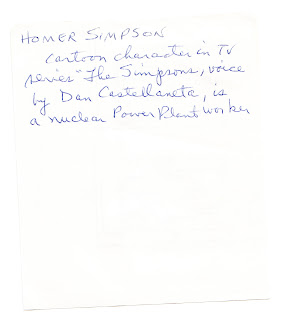 HOMER SIMPSON
cartoon character in TV
series "The Simpsons, voice
by Dan Castellaneta, is
a nuclear Power Plant worker